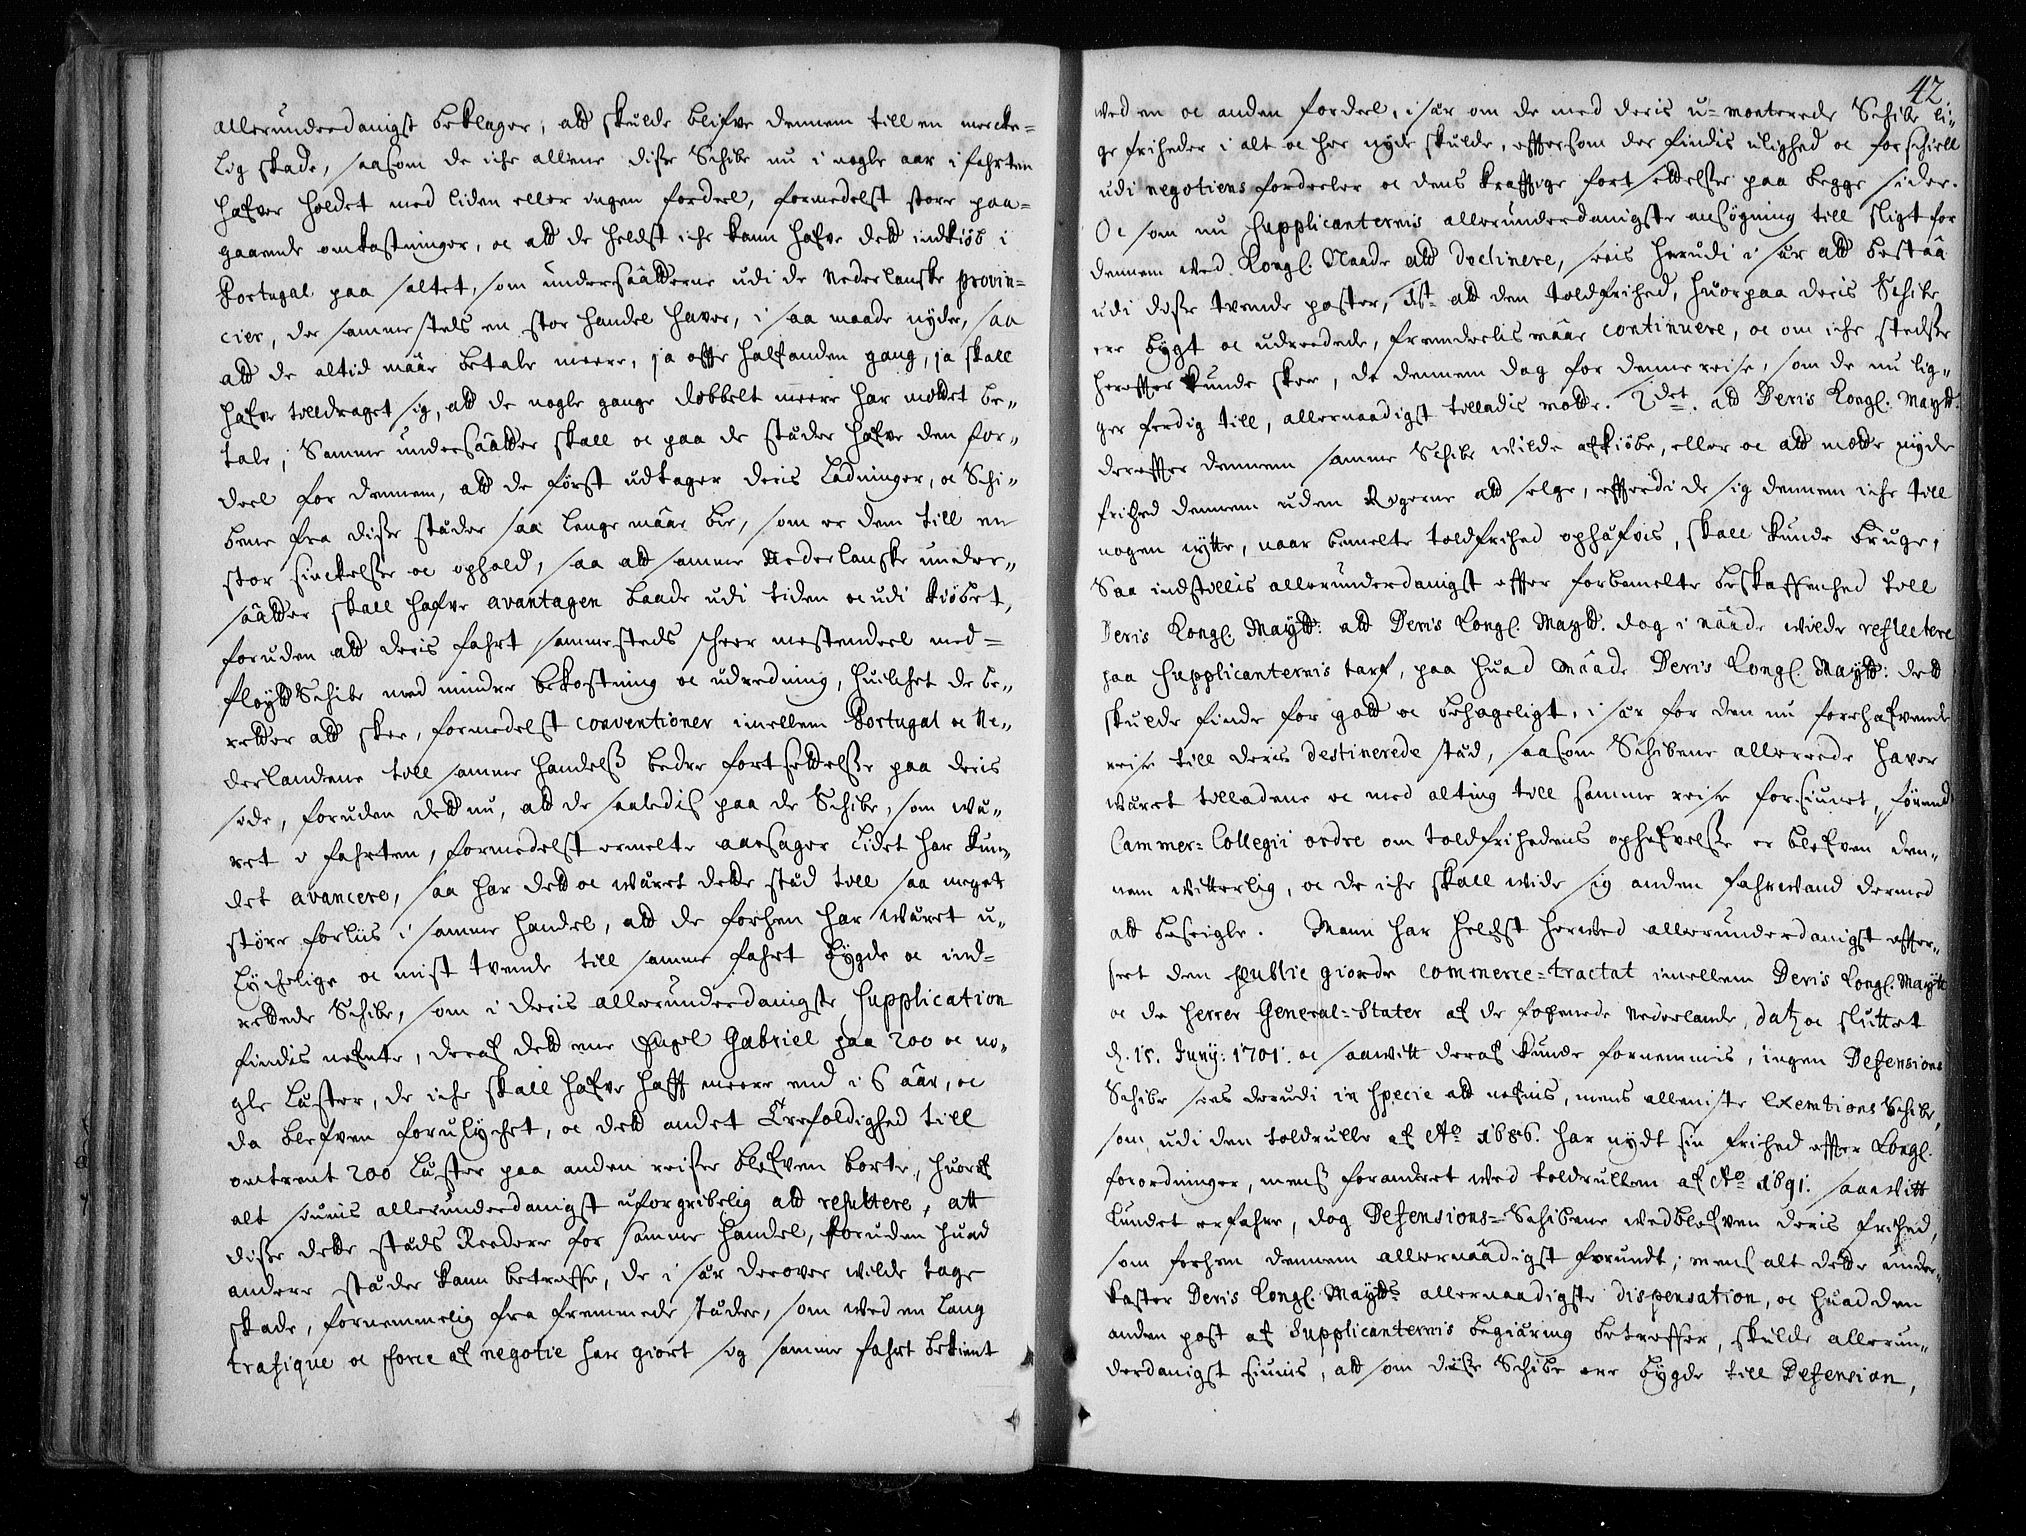 allerunderdanigst beklager, att skulde blifve dennem till en mercke-
lig skade, saasom de iche allene disse Schibe nu i nogle aar i fahrten
hafver holdet med liden eller ingen fordeel, formedelst store paa-
gaaende omkastninger, oc att de heldst iche kann hafve dett indkiøb i
Portugal paa saltet, som undersaatterne udi de Nederlanske Provin-
cier, der sammesteds en stor handel haver, i saa maade nyder, saa
att de altid maa betale meere, ja offte halfanden gang, ja skall
hafve tilldraget sig, att de nogle gange dobbelt meere har mottet be-
tale; Samme undersaatter skall oc paa de stæder hafve den for-
deel for dennem, att de først udtager deris Ladninger, oc Schi-
bene fra disse stæder saa lenge maa bie, som er dem till en
stor sinckelse oc ophold, saa att samme Nederlanske under-
saatter skall hafve avantagen baade udi tiden oc udi kiøbet,
foruden att deris fahrt sammesteds scheer mestendeel med
fløytt Schibe med mindre bekostning oc udredning, huilchet de be-
retter att skee, formedelst conventioner imellem Portugal oc Ne-
derlandene till samme handels bedre fortsettelse paa deris
side, foruden dett nu, att de saaledis paa de Schibe, som wæ-
ret i fahrten, formedelst ermelte aarsager lidet har kun-
det avancere, saa har dett oc wæret dette stæd till saa meget
større forliis i samme handel, att de forhen har wæret u-
lychelige oc mist tvende till samme fahrt bygde oc ind-
rettede Schibe, som i deris allerunderdanigste Supplication
findis nefnte, deraf dett ene Engel Gabriel paa 200 oc no-
gle Læster, de iche skall hafve hafft meere end i 6 aar, oc
da blefven forulychet, oc dett andet Trefoldighed till
omtrent 200 Læster paa anden reise blefven borte, huoraf
alt siunis allerunderdanigst uforgribelig att resultere, att
disse dette stæds Reedere for samme handel, foruden huad
andere stæder kann betreffe, de i sær derover wilde tage
skade, fornemmelig fra fremmede stæder, som wed en lang
trafique oc force af negotie har giort sig samme fahrt bekient
42.
wed en oc anden fordeel, i sær om de med deris u-monterede Schibe li-
ge friheder i alt oc her nyde skulde, effttersom der findis ulighed oc forschiell
udi negotiens fordeeler oc dens krafftige fortsettelse paa begge sider.
Oc som nu Supplicanternis allerunderdanigste ansøgning till sligt for
dennem wed Kongl. Naade att declinere, sees herudi i sær att bestaa
udi disse tvende poster, 1st att den toldfrihed, huorpaa deris Schibe
ere bygt oc udreedede, fremdeelis maa continuere, oc om iche stedse
herefter kunde skee, de dennem dog for denne reise, som de nu lig-
ger ferdig till, allernaadigst tilladis motte. 2det. att Deris Kongl. Maytt.
derefter dennem samme Schibe wilde afkiøbe, eller oc att motte nyde
frihed dennem uden Rigerne att selge, effterdi de sig dennem iche till
nogen nytte, naar bemelte toldfrihed ophæfvis, skall kunde bruge,
Saa indstillis allerunderdanigst effter forbemelte beskaffenhed till
Deris Kongl. Maytt: att Deris Kongl. Maytt. dog i naade wilde reflectere
paa Supplicanternis tarf, paa huad maade Deris Kongl. Maytt: dett
skulde finde for gott oc behageligt, i sær for den nu forehafvende
reise till deris destinerede stæd, saasom Schibene allereede haver
wæret tilladene oc med alting till samme reise forsiunet, førend
Cammer-Collegii ordre om toldfrihedens ophefvelse er blefven den-
nem witterlig, oc de iche skall wide sig anden fahrwand dermed
att beseigle. Mann har helst herwed allerunderdanigst effter-
seet den public giorde commerce-tractat imellem Deris Kongl. Maytt
oc de Herrer General-Stater af de foreenede Nederlande, dat. oc sluttet
d. 15. Juny: 1701. oc saawitt deraf kunde fornemmis, ingen Defensions
Schibe sees derudi in specie att nefnis, mens alleniste Exemtions Schibe,
som udi den toldrulle af Ao 1686. har nydt sin frihed effter Kongl.
forordninger, mens forandret wed toldrullen af Ao 1691. saawitt
kundet erfahre, dog Defensions-Schibene wedblefven deris frihed,
som forhen dennem allernaadigst forundt; mens alt dette under-
kaster Deris Kongl. Maytts allernaadigste dispensation, oc huad den
anden post af Supplicanternis begiæring betreffer, skulde allerun-
derdanigst siunis, att som disse Schibe ere bygde till Defension,